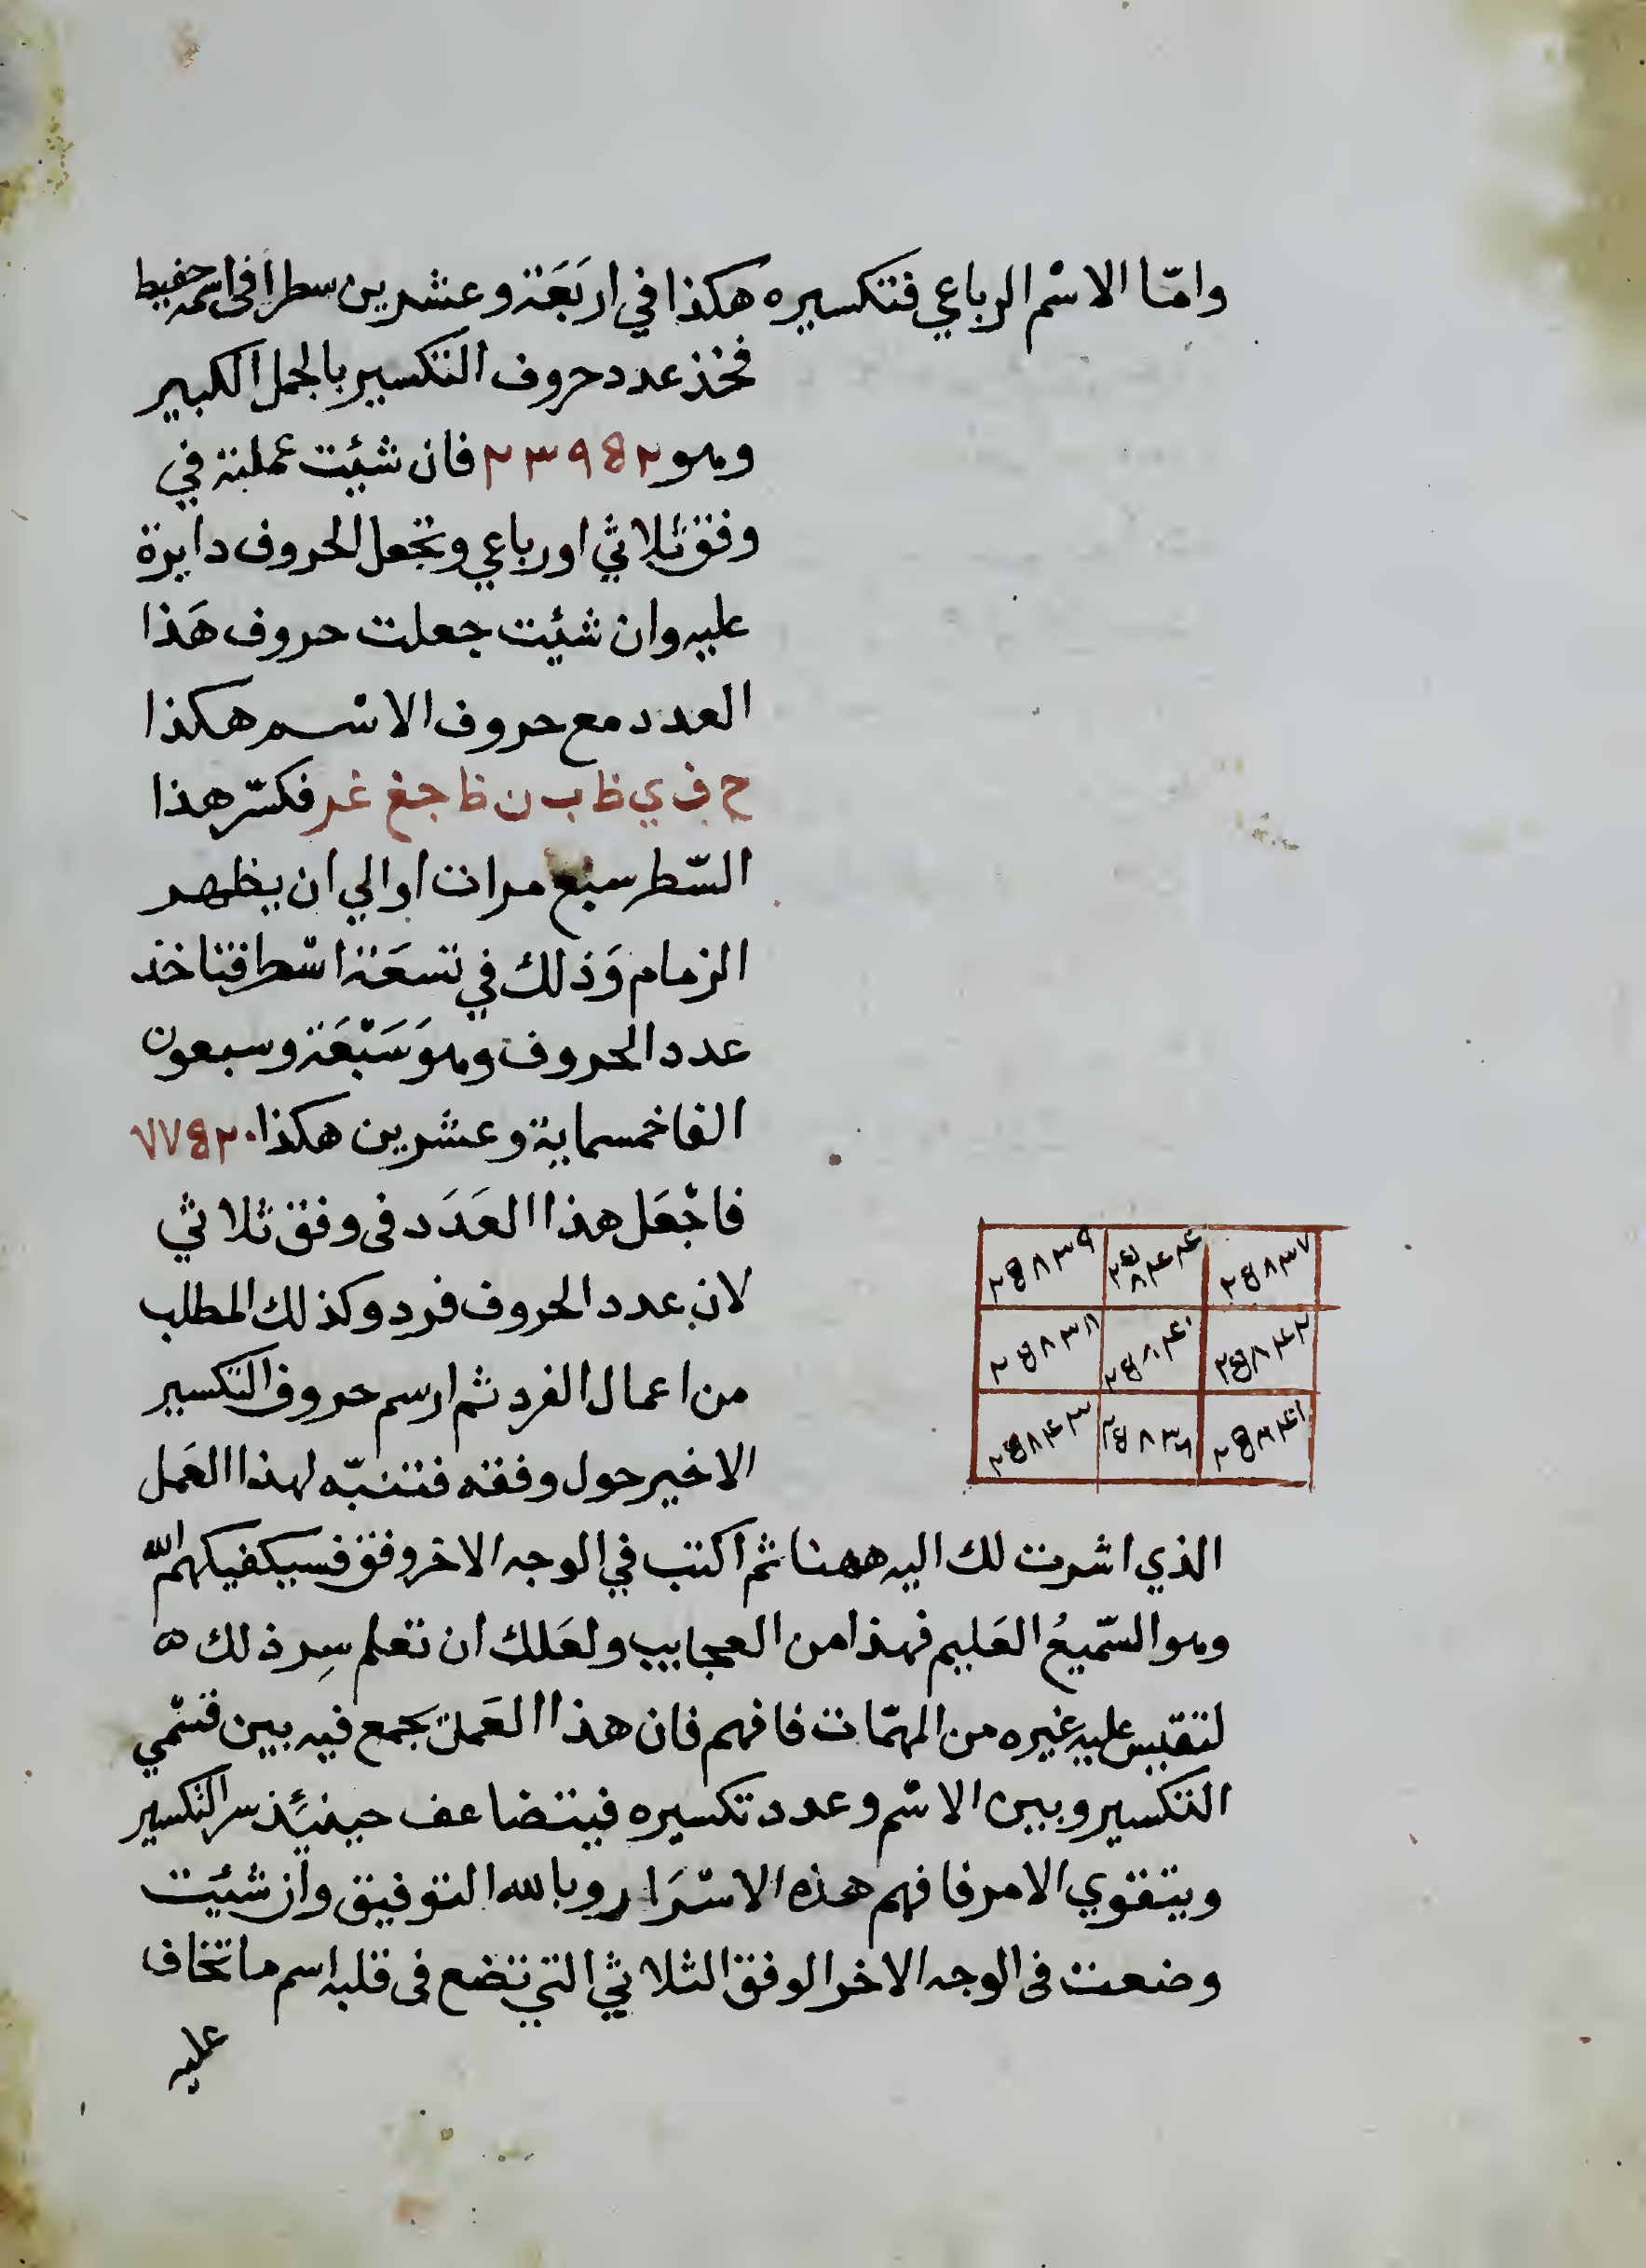 وامّا الاسْم الرباعي فتكسيره هكذا في اربَعَة وعشرين سطرا في اسمه حفيظ
فخذ عدد حروف التكسير بالجمل الكبير
وهو ٢٣٩٥٢ فان شئت عملته في
وفق ثلاثي او رباعي وتجعل الحروف دايرة
عليه وان شئت جعلت حروف هَذا
العدد مع حروف الاسْم هكذا
ح ف ي ظ ب ن ظ ج غ غ ر فكسّر هذا
السّطر سبع مرات او الي ان يظهر
الزمام وَذلك في تسعَة اسْطر فتاخذ
عدد الحروف وهوَ سَبْعَة وسبعون
الفا خمسماية وعشرين هكذا ٧٧٥٢٠
فاجْعَل هذا العَدَد في وفق ثلاثي
لان عدد الحروف فرد وكذلك المطلب
من اعمال الفرد ثم ارسم حروف التكسير
الاخير حول وفقه فتنبّه لهذا العَمل
٢٥٨٣٩ ٢٥٨٤٤ ٢٥٨٣٧
٢٥٨٣٨ ٢٥٨٤٠ ٢٥٨٤٢
٢٥٨٤٣ ٢٥٨٣٦ ٢٥٨٤١
الذي اشرت لك اليه ههنا ثم اكتب في الوجه الاخر وفق فسيكفيكهم الله
وهو السّميعُ العَليم فهذا من العجايب ولعَلك ان تعلم سِر ذلك
لتقيس عليه غيره من المهمّات فافهم فان هذا العَمل تجمع فيه بين قسْمي
التكسير وبين الاسْم وعدد تكسيره فيتضاعف حينئذ سر التكسير
ويتقوي الامر فافهم هذه الاسْرَار وبالله التوفيق وان شئت
وضعت في الوجه الاخر الوفق الثلاثي التي تضع في قلبه اسم ما تخاف
عليه